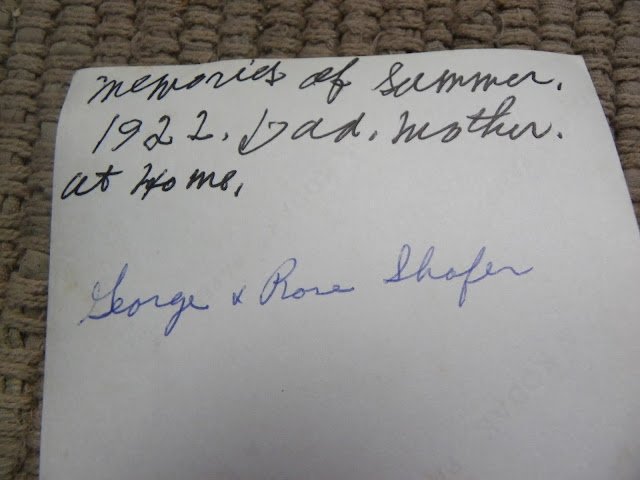 memories of Summer.
1922. Dad. Mother.
at Home.
George & Rose Shafer